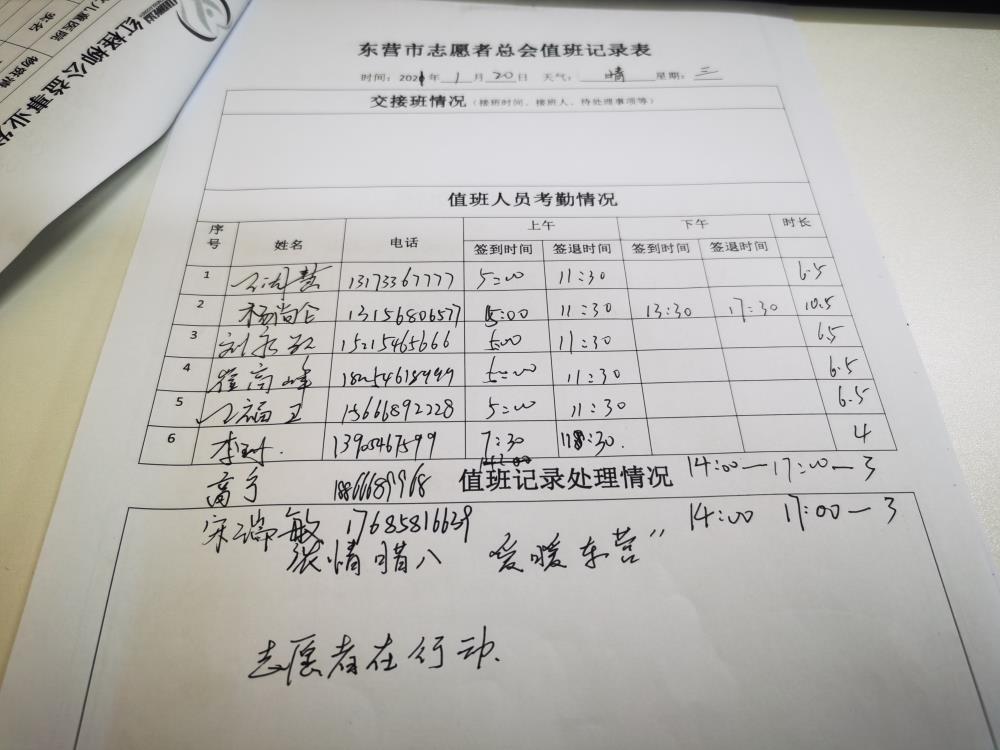 红柽柳公益事业发
东营市志愿者总会值班记录表
时间：2021年 1月20日 天气：晴 星期：三
交接班情况（接班时间、接班人、待处理事项等）
值班人员考勤情况
序号 姓名 电话 上午 下午 时长
签到时间 签退时间 签到时间 签退时间
1 13173367777 5:00 11:30 6.5
2 杨尚仑 13156806577 5:00 11:30 13:30 17:30 10.5
3 刘永红 15215465666 5:00 11:30 6.5
4 崔高峰 18254618999 5:00 11:30 6.5
5 王福卫 15666892228 5:00 11:30 6.5
6 李珂 13905467599 7:30 11:30. 4
高宁 18866689968 14:00—17:00—3
值班记录处理情况
宋瑞敏 17685816639 14:00 17:00—3
浓情腊八 爱暖东营”
志愿者在行动.